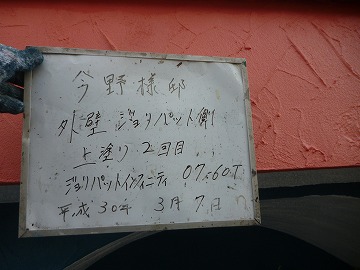 今野様邸
外壁 ジョリパット側
上塗り 2回目
ジョリパットインフィニティ 07-60T
平成30年 3月7日